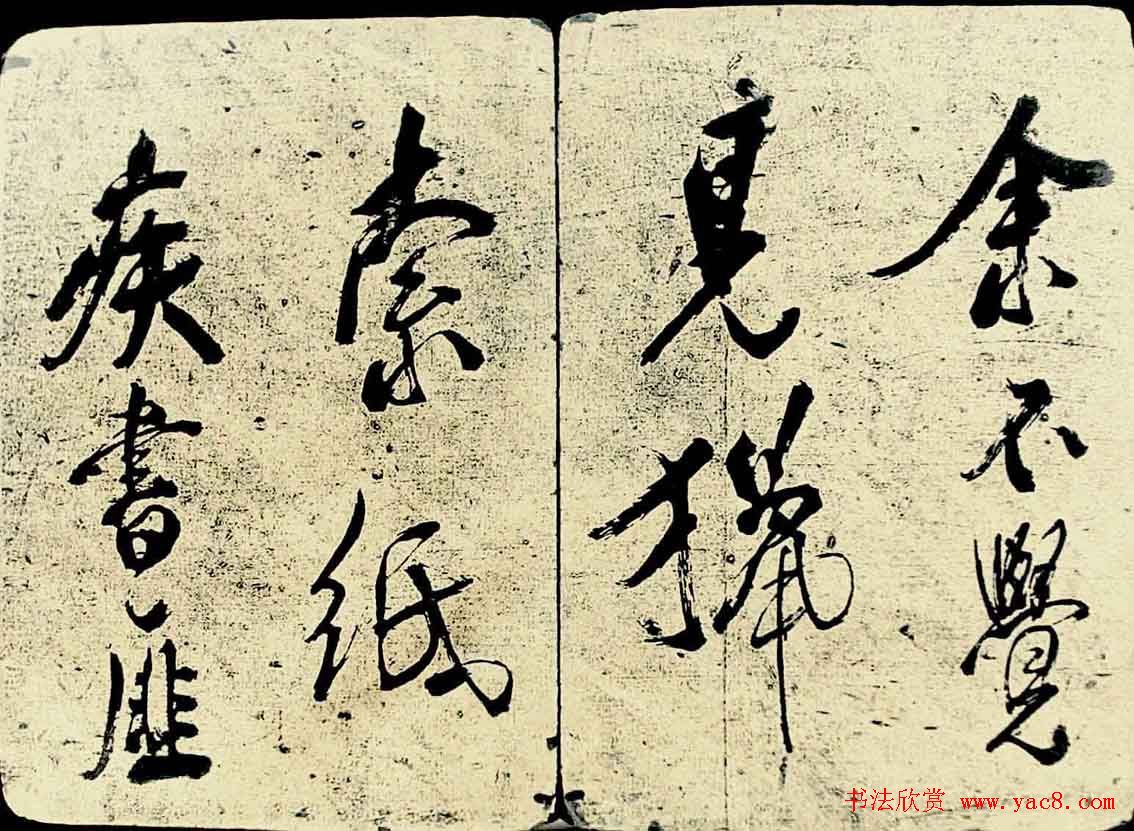 余不覺
見獵
索紙
疾書書匪
书法欣赏 www.yac8.com